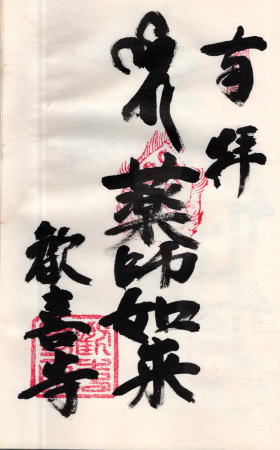 奉拝
薬師如来
歓喜寺